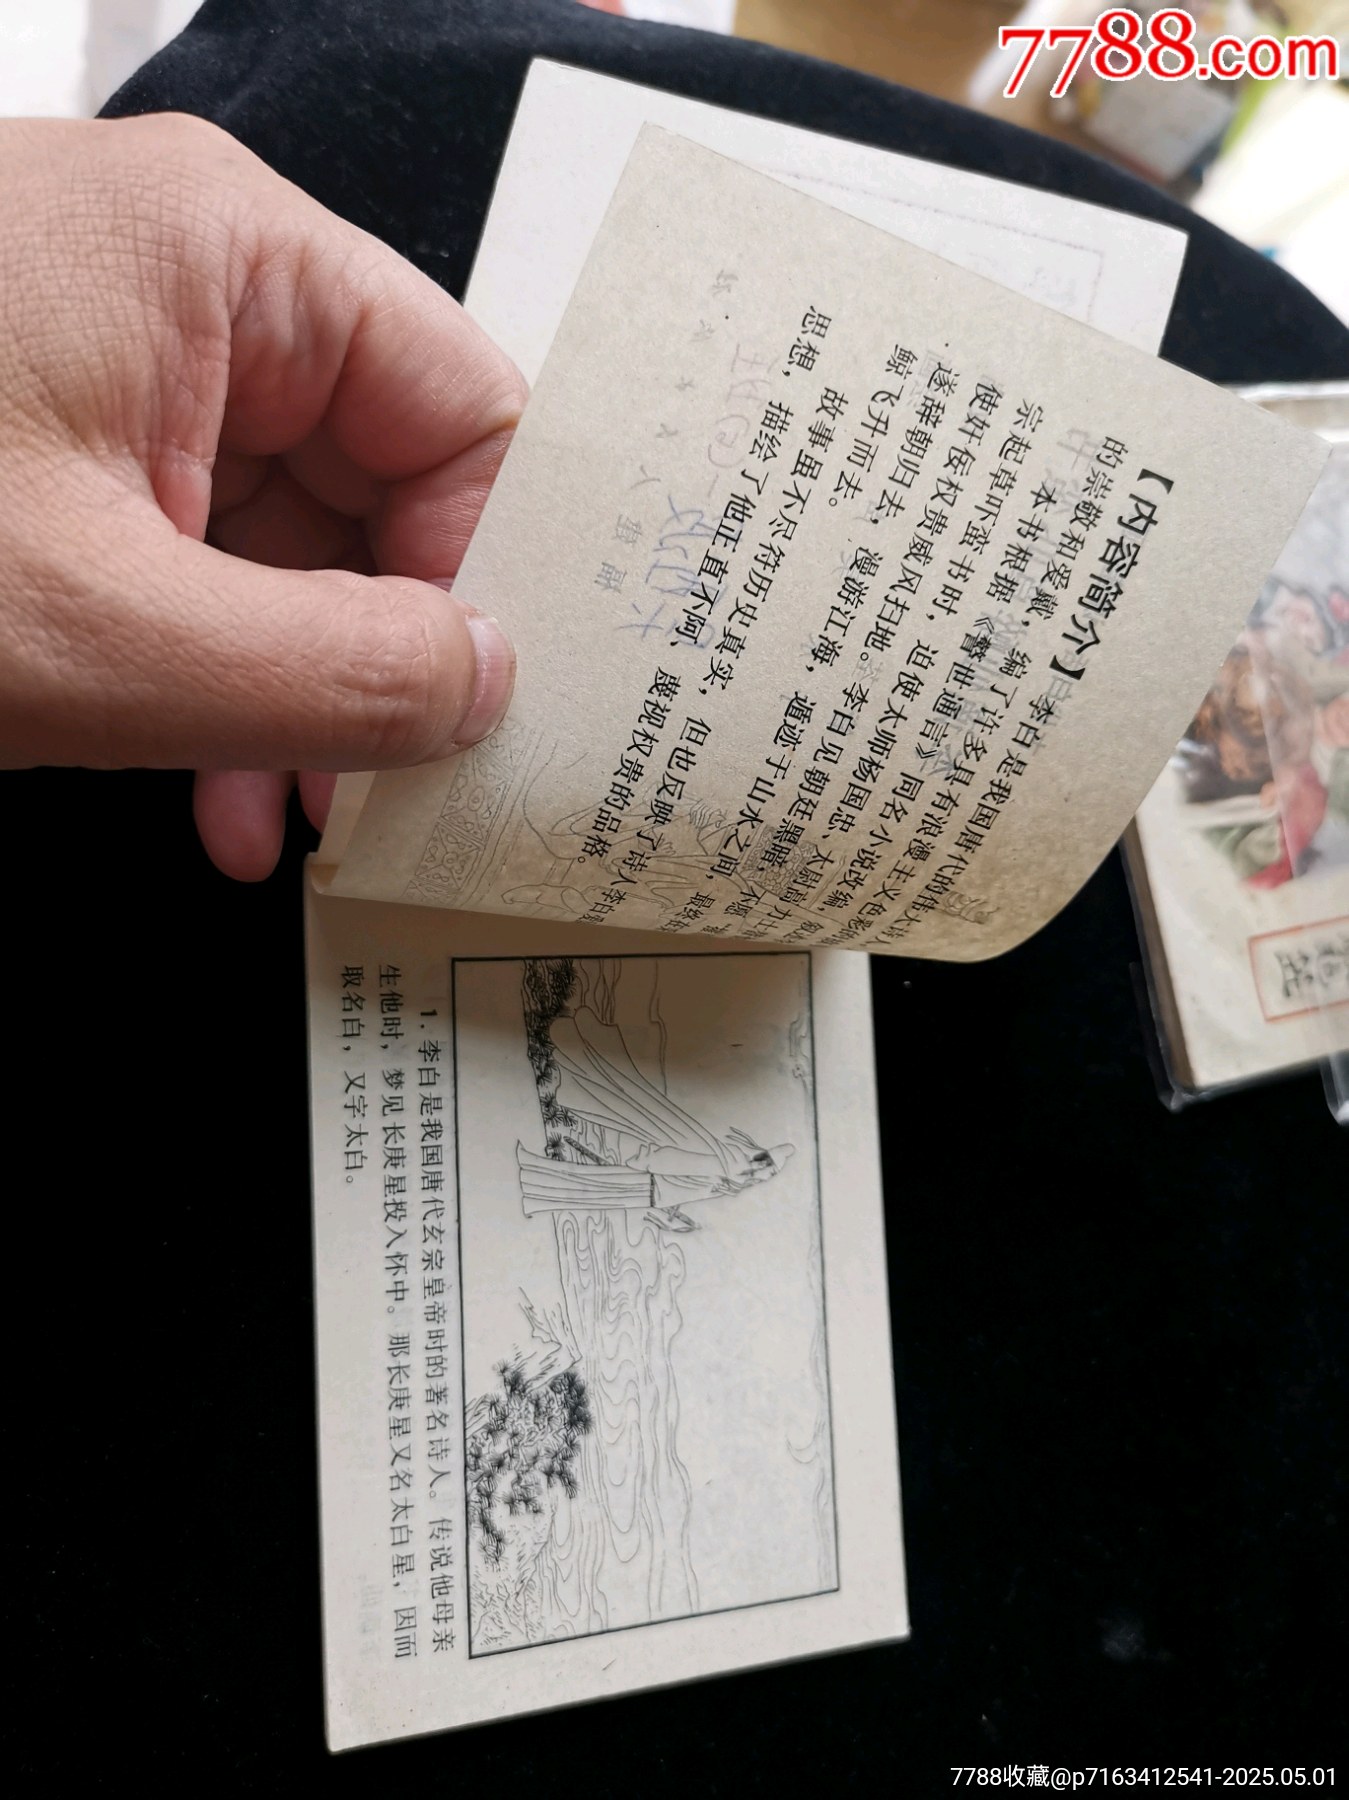 7788.com
【内容简介】李白是我国唐代的伟大诗人
的崇敬和爱戴，编了许多具有浪漫主义色彩的
本书根据《警世通言》同名小说改编，
宗起草吓蛮书时，迫使太师杨国忠、太尉高力士
使奸佞权贵威风扫地。李白见朝廷黑暗，不愿
遂辞朝归去，漫游江海，遁迹于山水之间，最终
鲸飞升而去。
故事虽不尽符历史真实，但也反映了诗人李白
思想，描绘了他正直不阿，蔑视权贵的品格。
1.李白是我国唐代玄宗皇帝时的著名诗人。传说他母亲
生他时，梦见长庚星投入怀中。那长庚星又名太白星，因而
取名白，又字太白。
7788收藏@p7163412541-2025.05.01